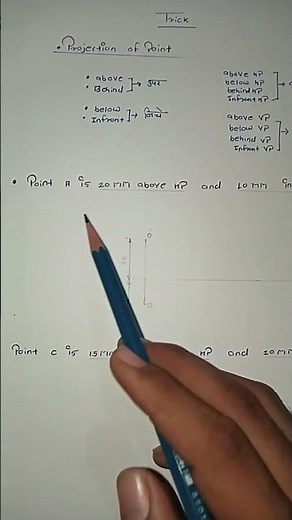 Trick
• Projection of Point
• above
• Behind
ऊपर
• below
• Infront
नीचे
above HP
below HP
behind HP
Infront HP
above VP
below VP
behind VP
Infront VP
• Point A is 20 MM above HP and 10 MM in
Point C is 15 M HP and 20 M